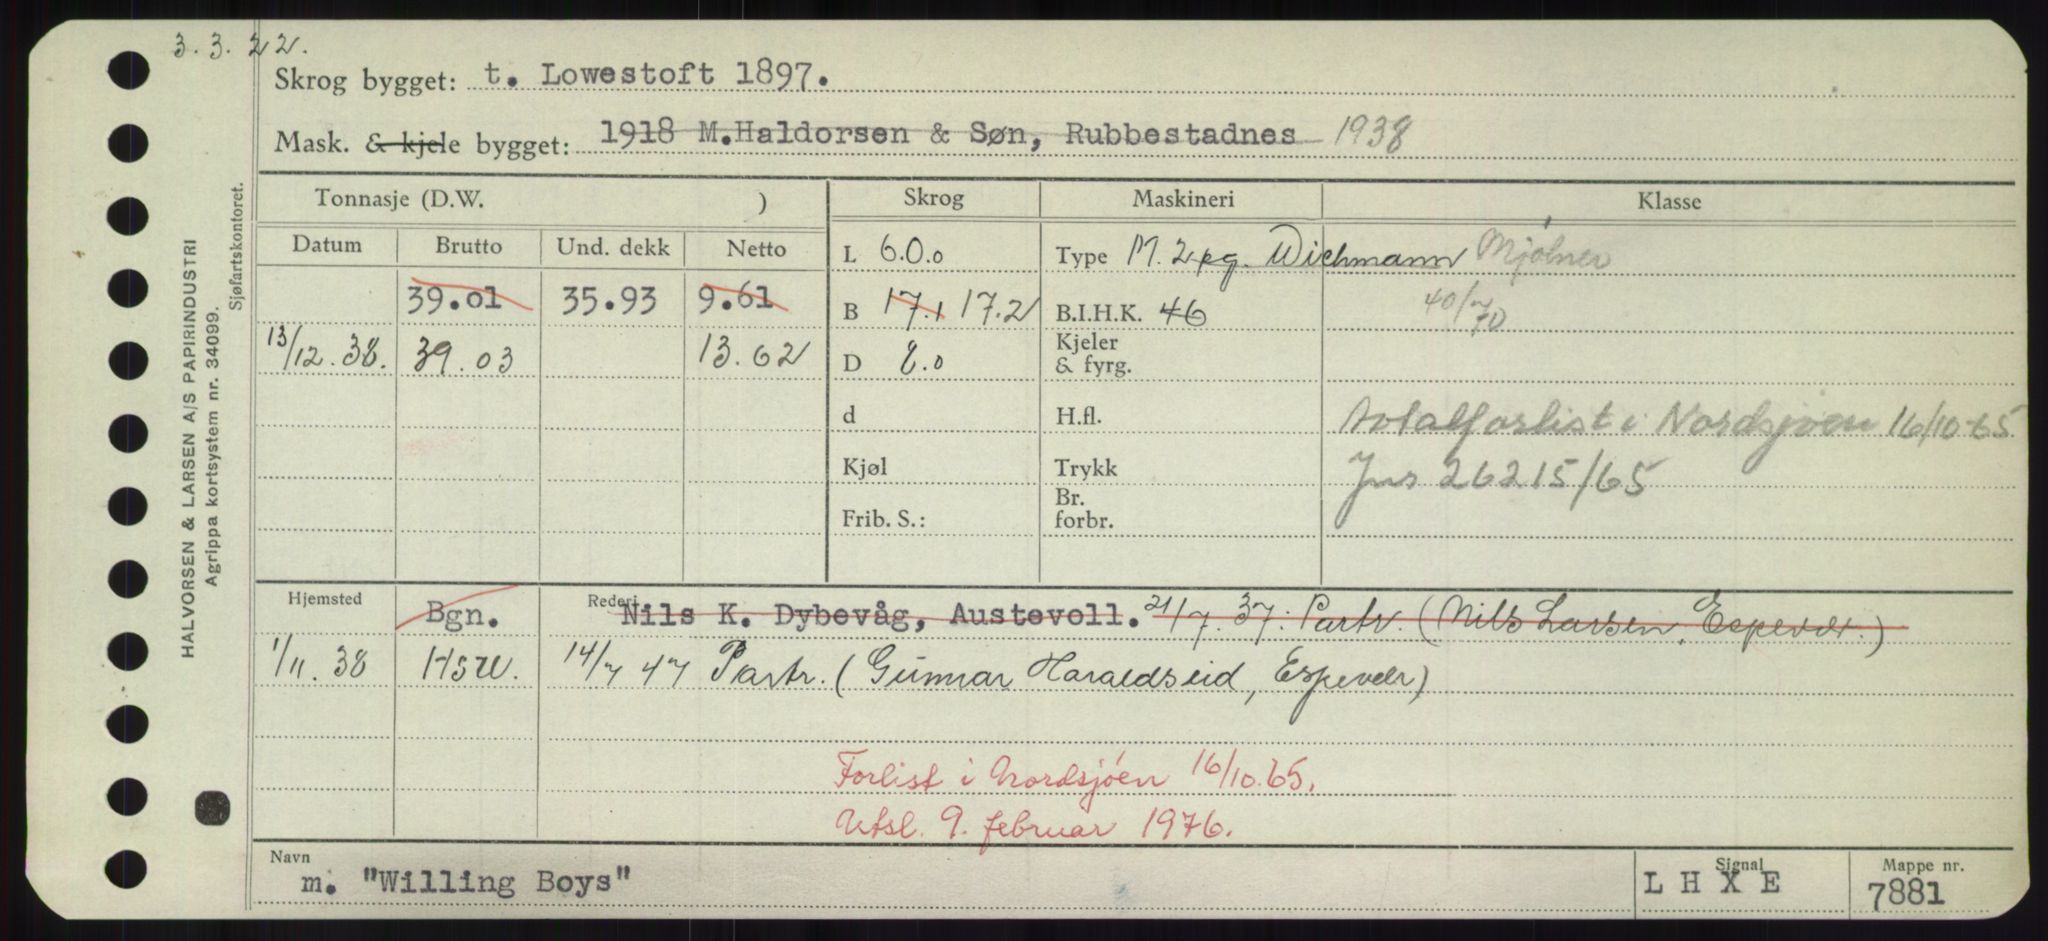 3.3.22.
Skrog bygget: t. Lowestoft 1897.
Mask. & kjele bygget: 1918 M.Haldorsen & Søn, Rubbestadnes 1938
Tonnasje (D.W. ) Skrog Maskineri Klasse
Datum Brutto Und. dekk Netto L 60.0 Type M. 2 pg. Wichmann Mjølner
39.01 35.93 9.61 B 17.1 17.2 B.I.H.K. 46 40/70
13/12.38. 39.03 13.62 D 8.0 Kjeler & fyrg.
d H.fl. Totalforlist i Nordsjøen 16/10-65
Kjøl Trykk Jns 26215/65
Frib. S.: Br. forbr.
Hjemsted Bgn. Rederi Nils K. Dybevåg, Austevoll. 21/7.37. Partr. (Nils Larsen, Espevær.)
1/11.38 HSW. 14/7 47 Partr. (Gunnar Haraldseid, Espevær)
Forlist i Nordsjøen 16/10.65.
Utsl. 9. februar 1976.
Navn m. "Willing Boys" Signal L H X E Mappe nr. 7881
HALVORSEN & LARSEN A/S PAPIRINDUSTRI
Agrippa kortsystem nr. 34099.
Sjøfartskontoret.